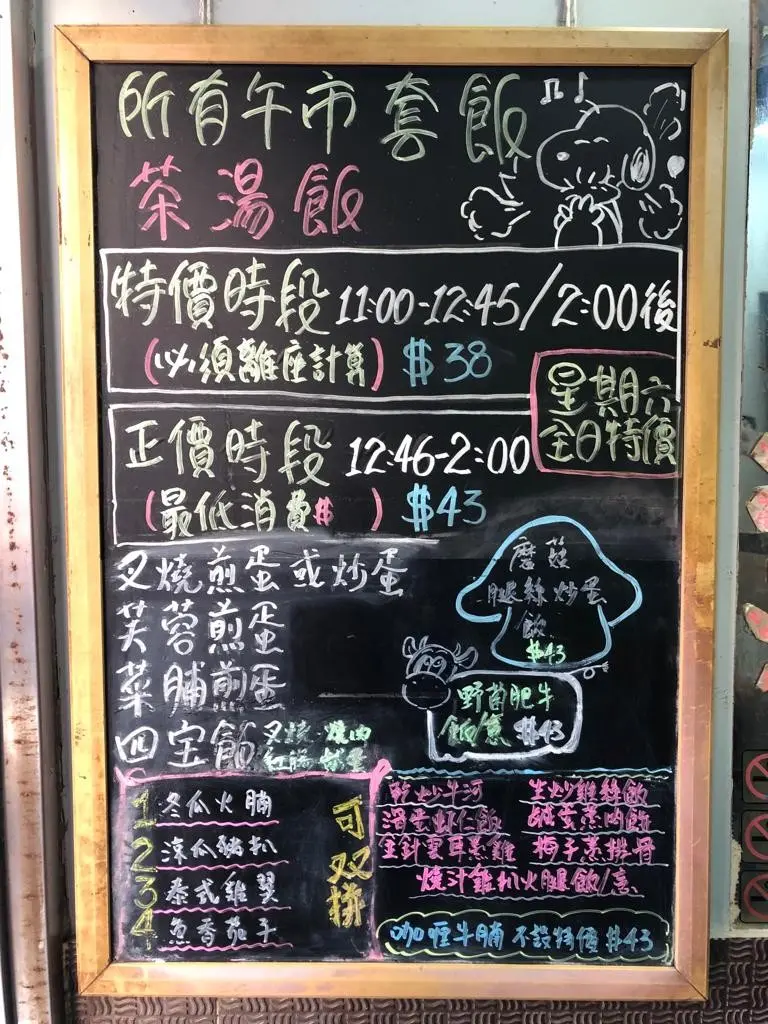 所有午市套飯
茶湯飯
特價時段 11:00-12:45/2:00後
(必須離座計算) $38
星期六
全日特價
正價時段 12:46-2:00
(最低消費$ ) $43
叉燒煎蛋或炒蛋
芙蓉煎蛋
菜脯煎蛋
四宝飯 叉燒 燒肉
紅腸
磨菇
腿絲炒蛋
飯
$43
野菌肥牛
飯/意 $43
1 冬瓜火腩
2 涼瓜豬扒
3 泰式雞翼
4 魚香茄子
可双拼
乾炒牛河 生炒雞絲飯
滑蛋虾仁飯 鹹蛋蒸肉餅
金針雲耳蒸雞 梅子蒸排骨
燒汁雞扒火腿飯/意
咖喱牛腩 不設特價 $43